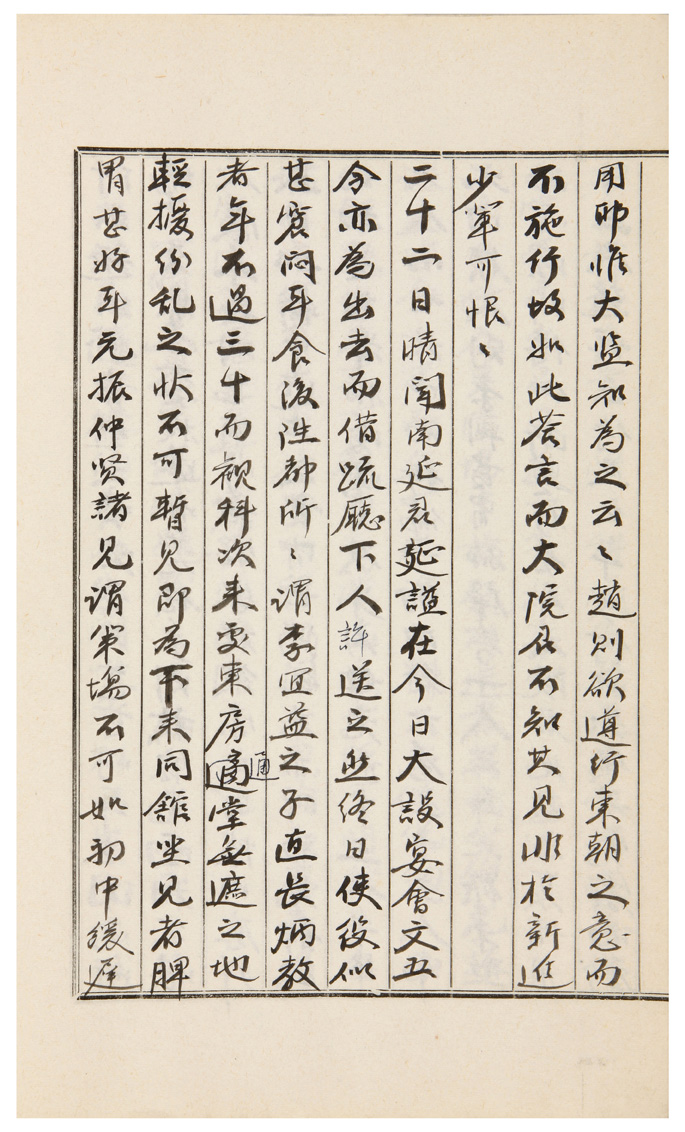 用帥惟大監知為之云〻趙則欲遵行東朝之意而
不施行故如此答言而大院君不知其見非於新進
少輩可恨〻
二十二日晴聞南延君延諡在今日大設宴會文五
令亦為出去而借䟽廳下人許送之然終日使役似
甚窘悶耳食後往都所〻謂李冝益之子直長炳教
者年不過三十而觀科次来處東房通堂無遮之地
輕擾份乱之状不可暫見即為下来同舘坐見者脾
胃甚好耳元振仲賢諸見謂策塲不可如初中緩遅